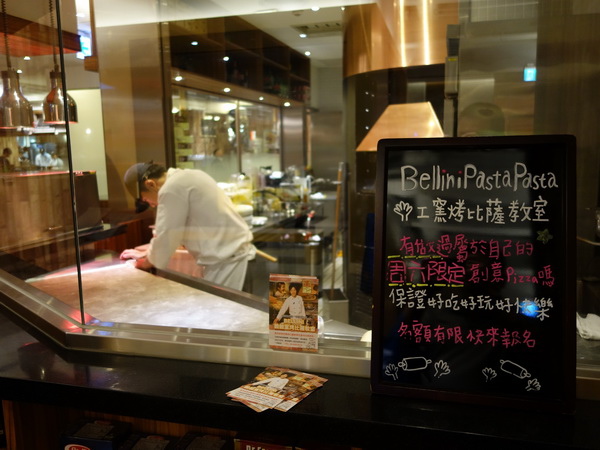 Bellini Pasta Pasta
工窯烤比薩教室
有做過屬於自己的
周六限定創意Pizza嗎
保證好吃好玩好快樂
名額有限快來報名